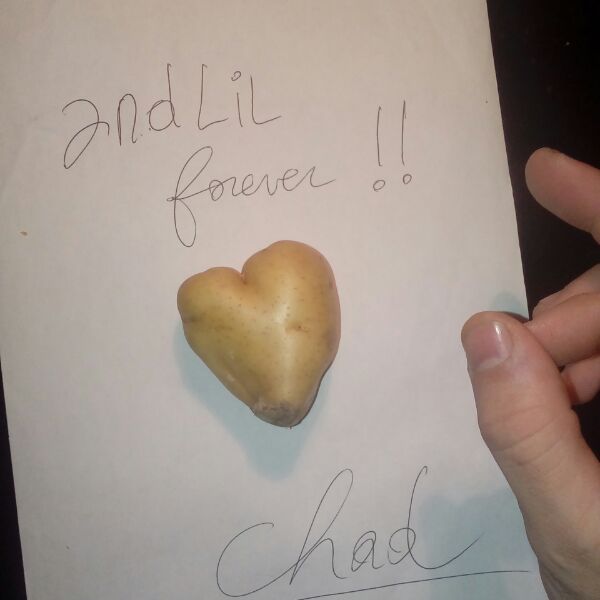 2nd LiL
forever !!
Chad